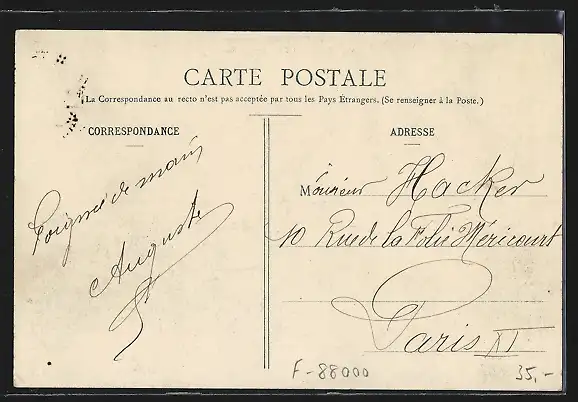 CARTE POSTALE
La Correspondance au recto n'est pas acceptée par tous les Pays Étrangers. (Se renseigner à la Poste.)
CORRESPONDANCE
Poignée de main
Auguste
ADRESSE
Monsieur Hacker
10 Rue de la Folie Méricourt
Paris XI
F-88000
35,-